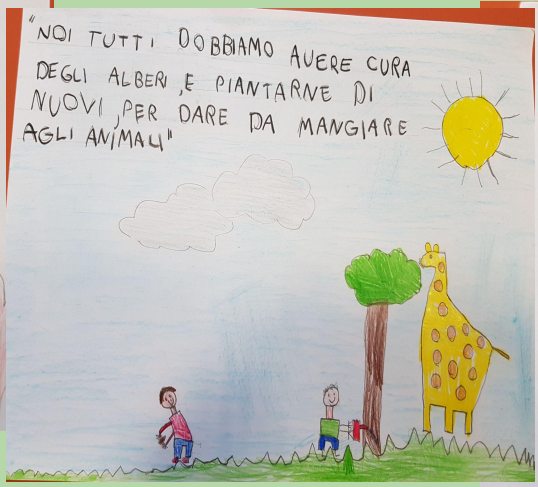 "NOI TUTTI DOBBIAMO AVERE CURA
DEGLI ALBERI, E PIANTARNE DI
NUOVI, PER DARE DA MANGIARE
AGLI ANIMALI"